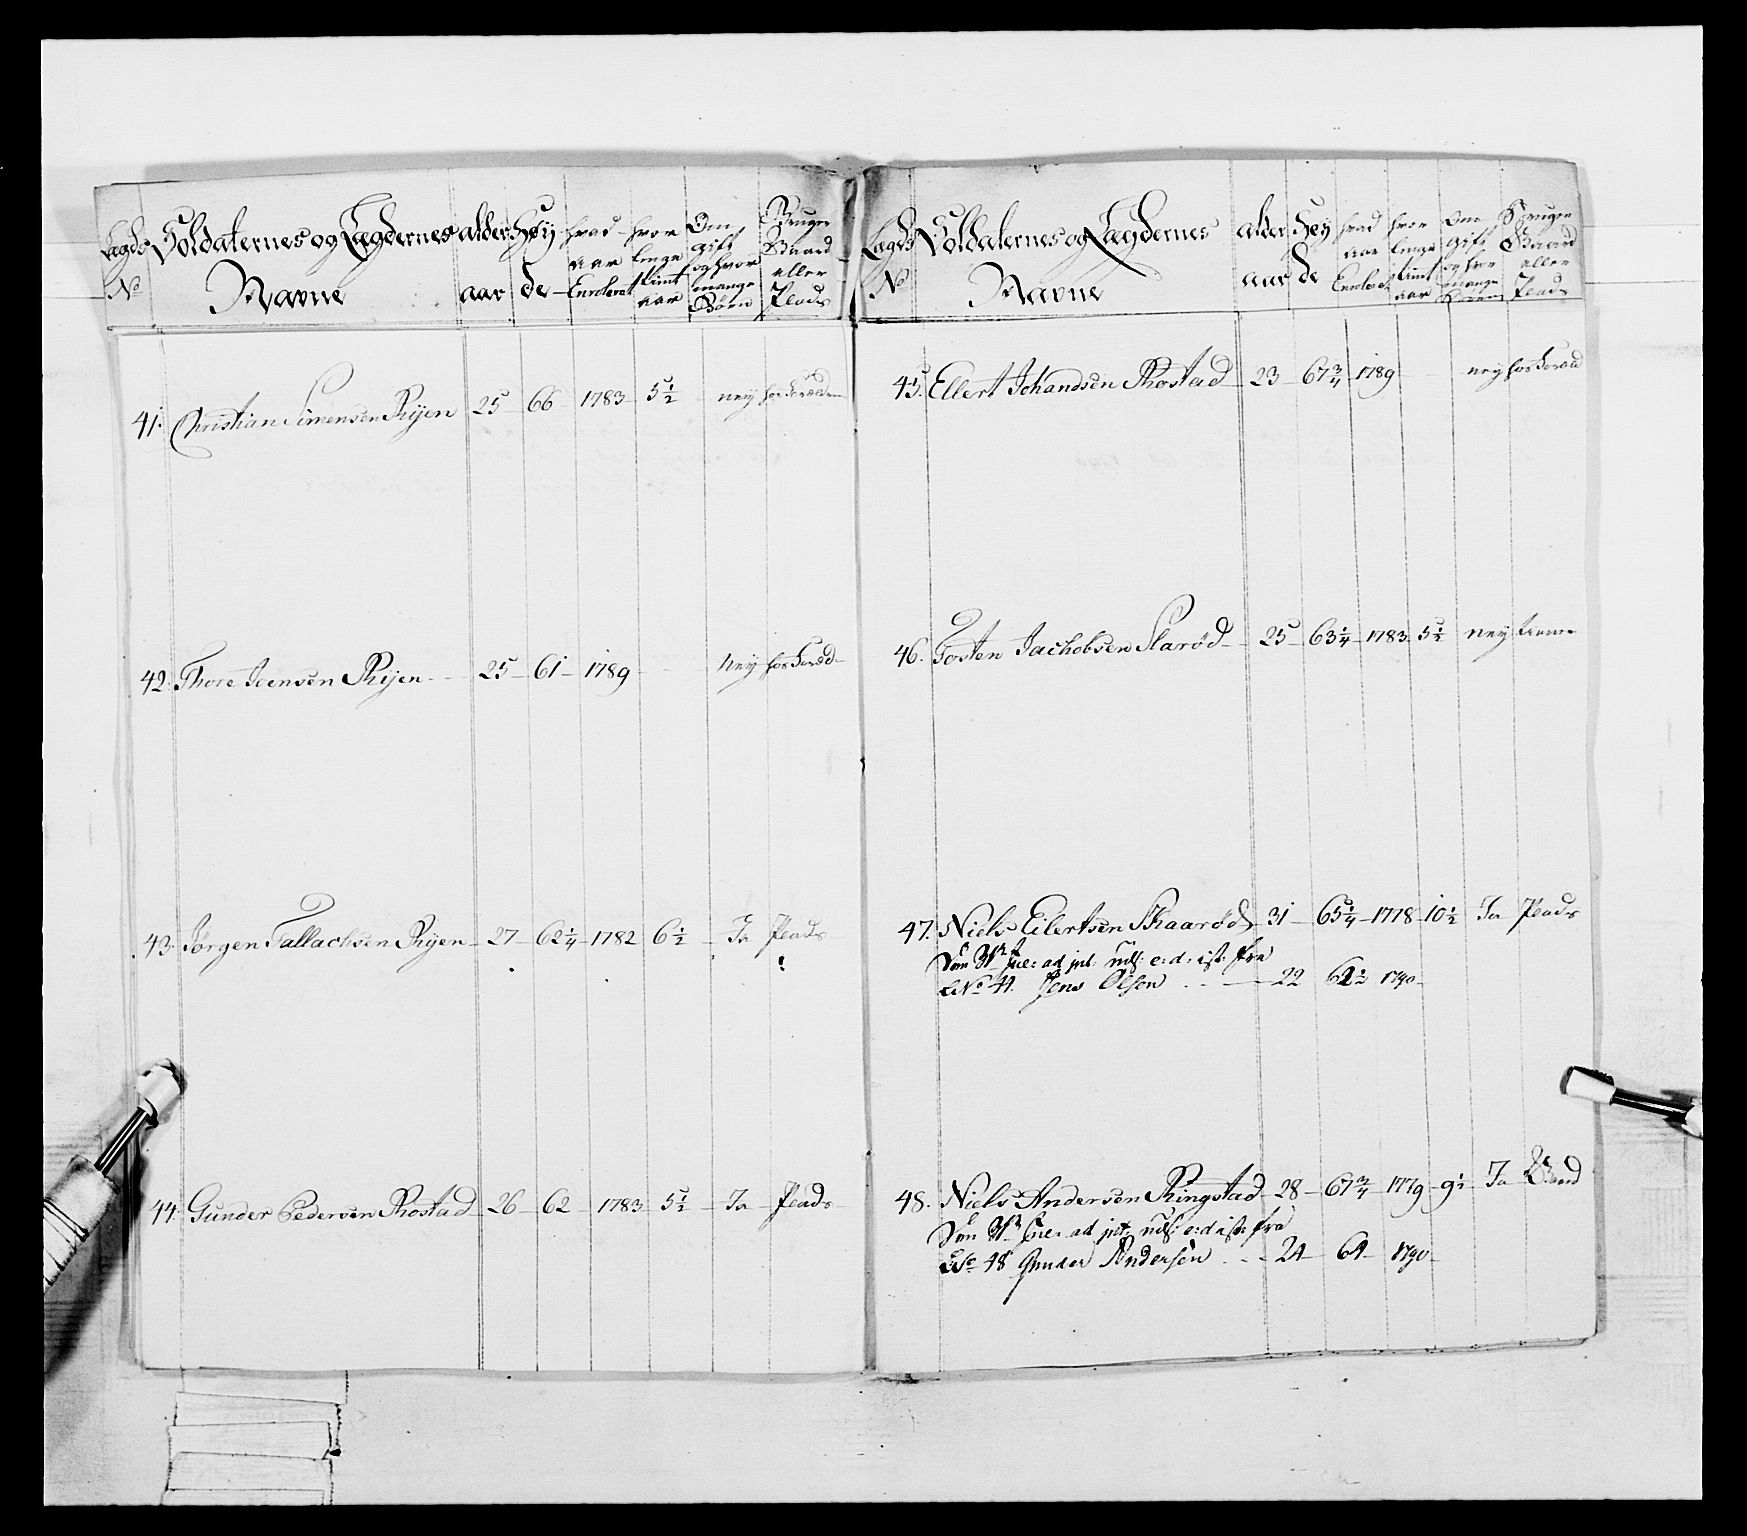 Lægds No
Soldaternes og Lægdernes Navne
alder aar
Høy de
hvad aar Enrolerat
hvor længe tient aar
Om gift og hvor mange Børn
Bruger Gaard eller Plads
41. Christian Simensen Ryen 25 66 1783 5 1/2 neÿ hos
42. Thore Joensen Ryen 25 61 1789 neÿ hos
43. Jørgen Tallachsen Ryen 27 62 1/4 1782 6 1/2 Ja Plads
44. Gunder Pedersen Rostad 26 62 1783 5 1/2 Ja Plads
Lægds No
Soldaternes og Lægdernes Navne
alder aar
Høy de
hvad aar Enrolerat
hvor længe tient aar
Om gift og hvor mange Børn
Bruger Gaard eller Plads
45. Ellert Johandsen Rostad 23 67 3/4 1789 neÿ hos
46. Tosten Jachobsen Slarød 25 63 1/4 1783 5 1/2 neÿ
47. Niels Eilertsen Skaarød 31 65 1/4 1778 10 1/2 Ja Plads
ad fra
No 41. Jens Olsen 22 62 1/2 1790
48. Niels Andersen Ringstad 28 67 3/4 1779 9 1/2 Ja Gaard
ad fra
No 48 Gunder Andersen 24 64 1790